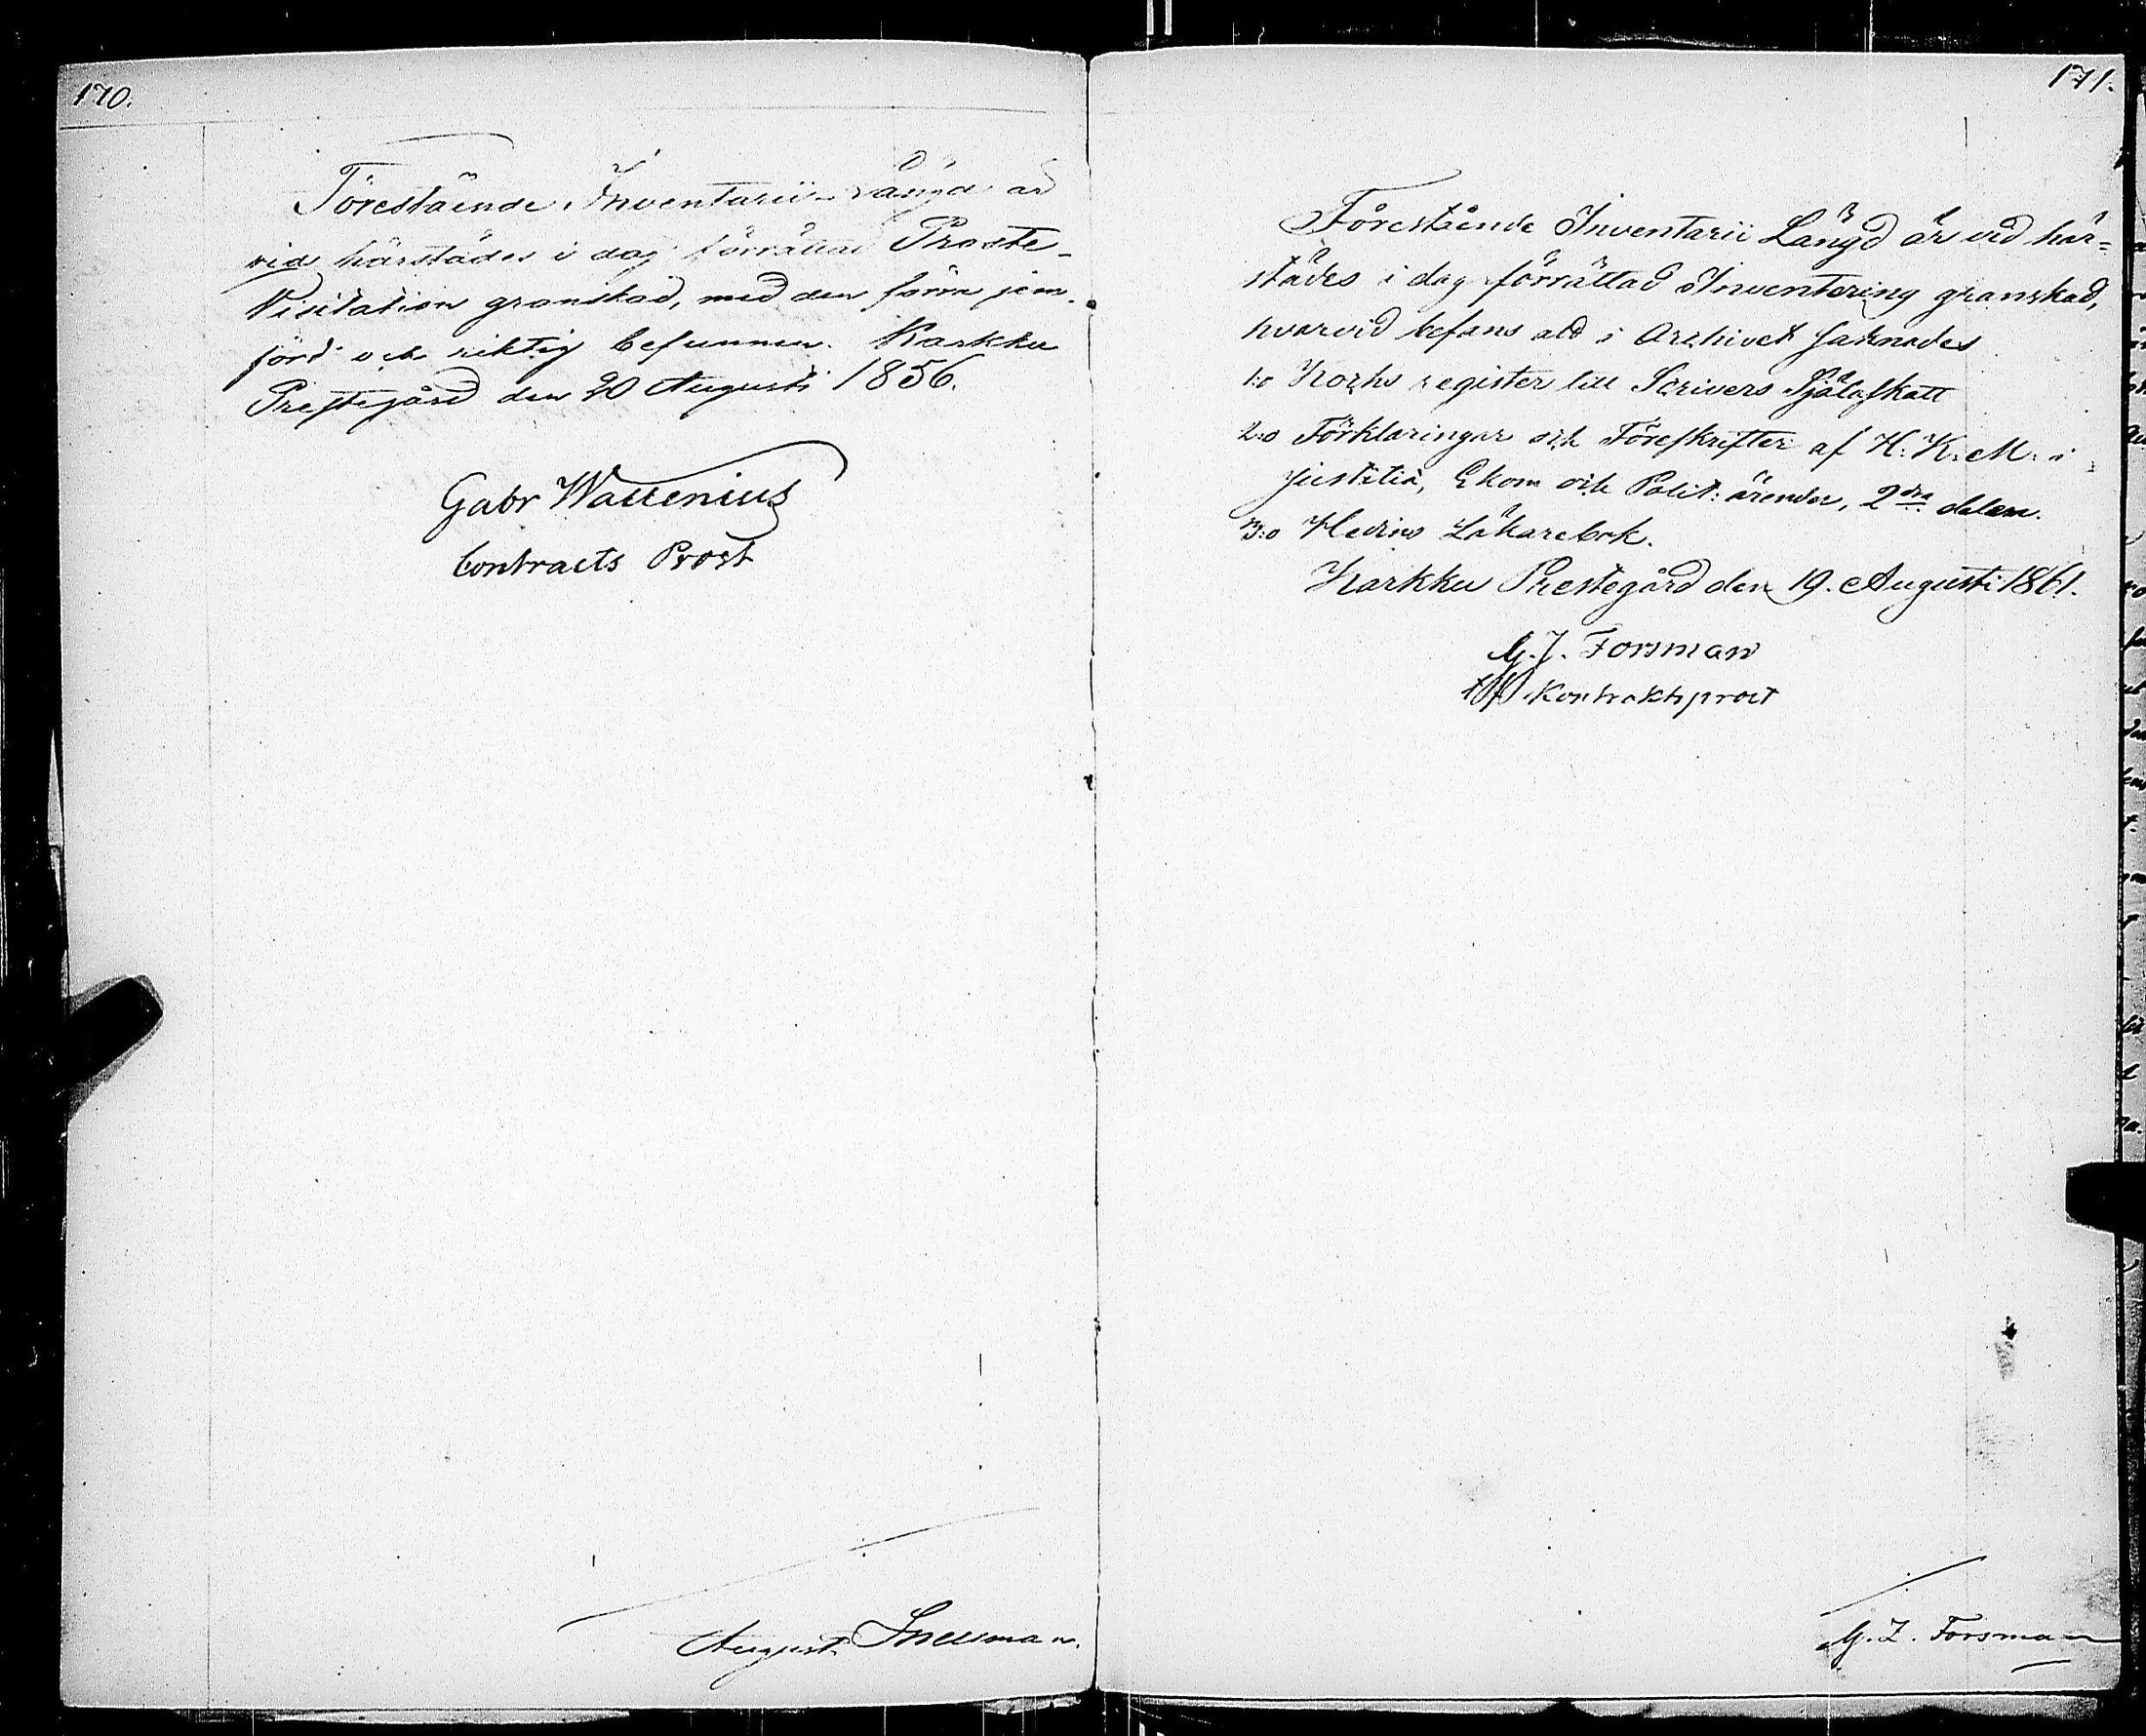 170.
Förestående Inventarii-Längd är
vid härstädes i dag förrättad Proste-
Visitation granskad, med den förra jem-
förd och riktig befunnen. Karkku
Prestegård den 20 Augusti 1856.
Gabr Wallenius
Contracts Prost
August
171.
Förestående Inventarii Längd är vid här=
städes i dag förrättad Inventering granskad,
hvarvid befans att i Archivet saknades
1:o Kochs register till Scrivers Själaskatt
2:o Förklaringar och Föreskrifter af H. K. M. i
Justitiæ, Ekom och Polit: ärender, 2dra delen.
3:o Hedins Läkarebok.
Karkku Prestegård den 19. Augusti 1861.
G. J. Forsman
Kontraktsprost
G. J. Forsman